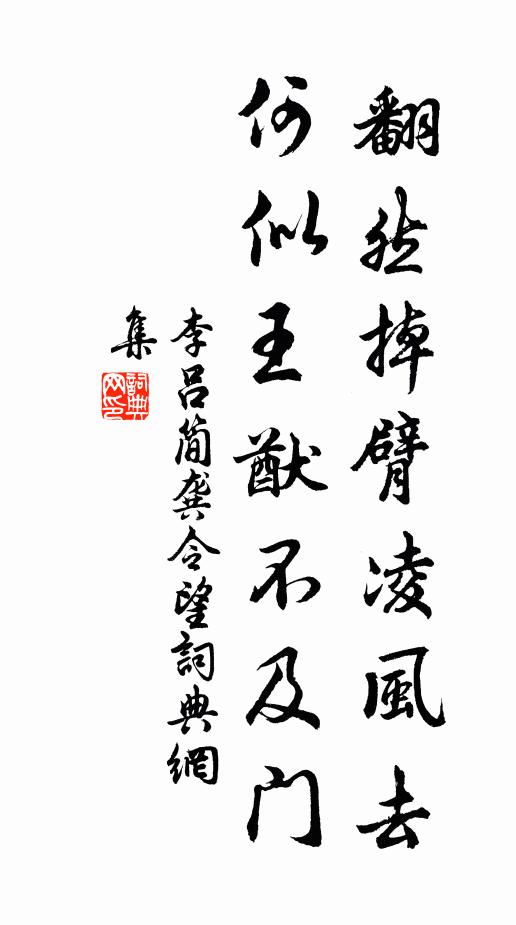 翻然掉臂凌風去
何似王猷不及门
李吕简龚令望詞典網
集
詞典
网印